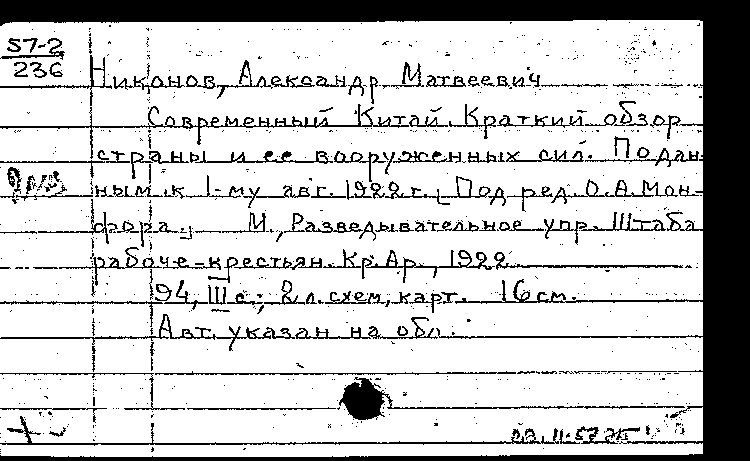 57-2
236
Никонов, Александр Матвеевич
Современный Китай. Краткий обзор
страны и ее вооруженных сил. По дан-
ным к 1-му авг. 1922 г. [Под ред. О.А. Мон-
фора.] М., Разведывательное упр. Штаба
рабоче-крестьян. Кр. Ар., 1922
94, III с.; 2 л. схем, карт. 16 см.
Авт. указан на обл.
22.11.57